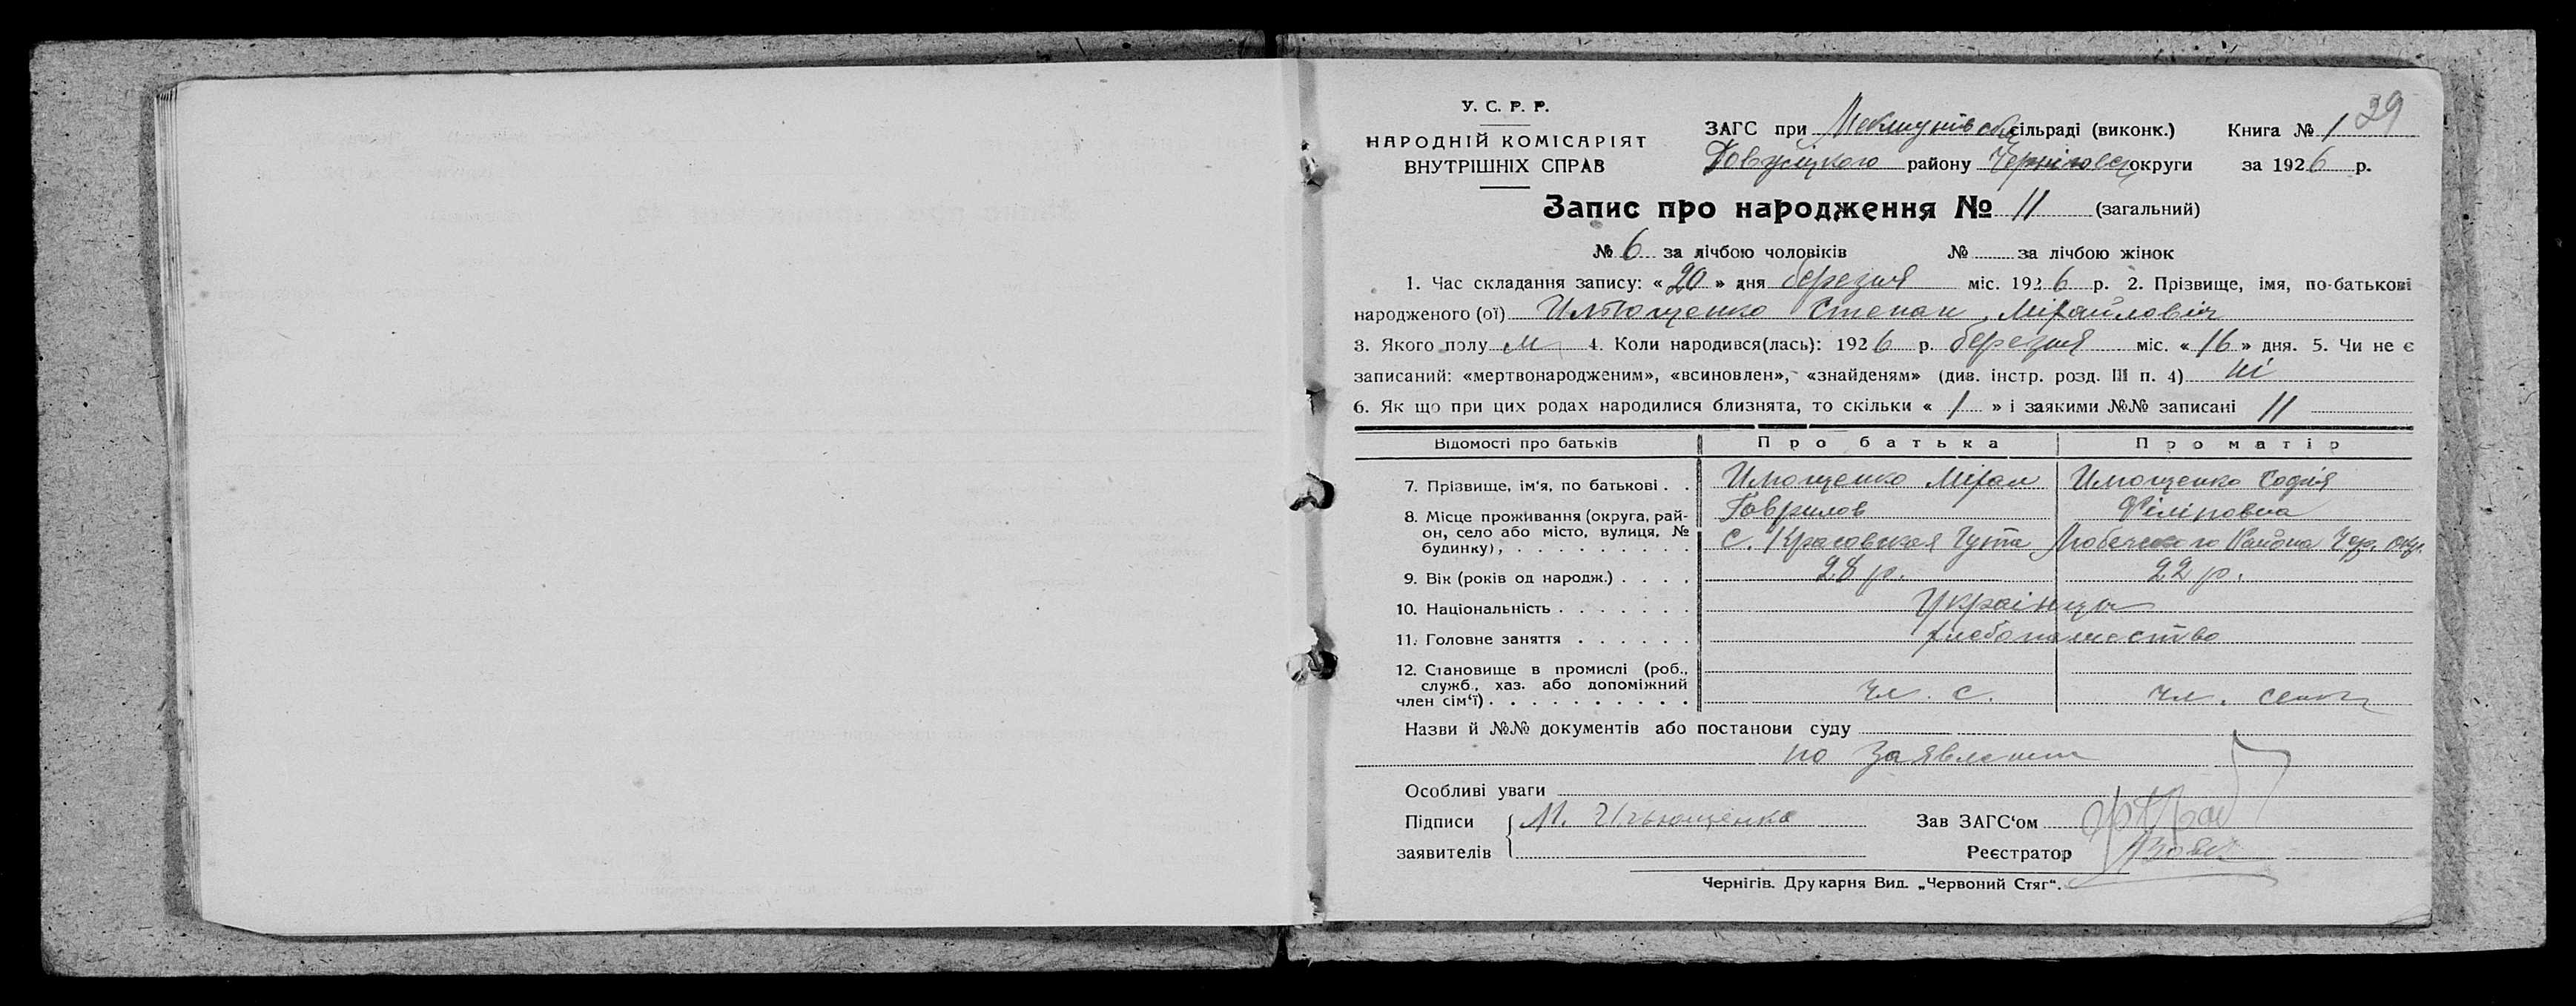 У. С. Р. Р.
НАРОДНІЙ КОМІСАРІЯТ
ВНУТРІШНІХ СПРАВ
39
ЗАГС при сільраді (виконк.) Книга № 1
району округи за 1926 р.
Запис про народження № 11 (загальний)
№ 6 за лічбою чоловіків № за лічбою жінок
1. Час складання запису: « 20 » дня березня міс. 1926 р. 2. Прізвище, імя, по-батькові
народженого (ої) Степан Міхайловіч
3. Якого полу м 4. Коли народився(лась): 1926 р. березня міс. « 16 » дня. 5. Чи не є
записаний: «мертвонародженим», «всиновлен», «знайденям» (див. інстр. розд. III п. 4) ні
6. Як що при цих родах народилися близнята, то скільки « 1 » і заякими №№ записані 11
Відомості про батьків Про батька Про матір
7. Прізвище, ім'я, по батькові . . Илющенко Міхал Илющенко Софія
Гаврилов Філіповна
8. Місце проживання (округа, рай-
он, село або місто, вулиця, №
будинку), . . . . . . . . . с. Гута Любечского Района Чер. окр.
9. Вік (років од народж.) . . . . 28 р. 22 р.
10. Національність . . . . . . . Українци
11. Головне заняття . . . . . . хлебопашество
12. Становище в промислі (роб.,
служб., хаз. або допоміжний
член сім'ї) . . . . . . . . . . чл. с. чл.
Назви й №№ документів або постанови суду
по заявлению
Особливі уваги
Підписи М. Ильющенко Зав ЗАГС'ом
заявителів Реєстратор
Чернігів. Друкарня Вид. „Червоний Стяг“.